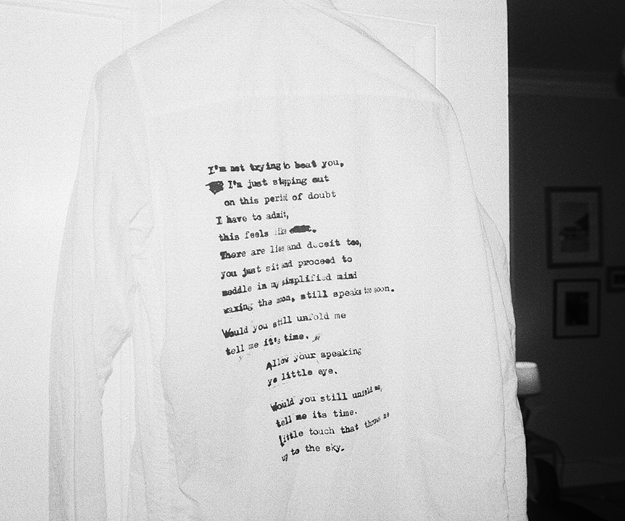 I'm not trying to beat you,
I'm just stepping out
on this period of doubt
I have to admit,
this feels like
There are lies and deceit too,
you just sit and proceed to
meddle in my simplified mind
waxing the moon, still speaks too soon.
Would you still unfold me
tell me it's time.
Allow your speaking
ye little eye.
Would you still unfold me,
tell me its time.
Little touch that throws me
up to the sky.